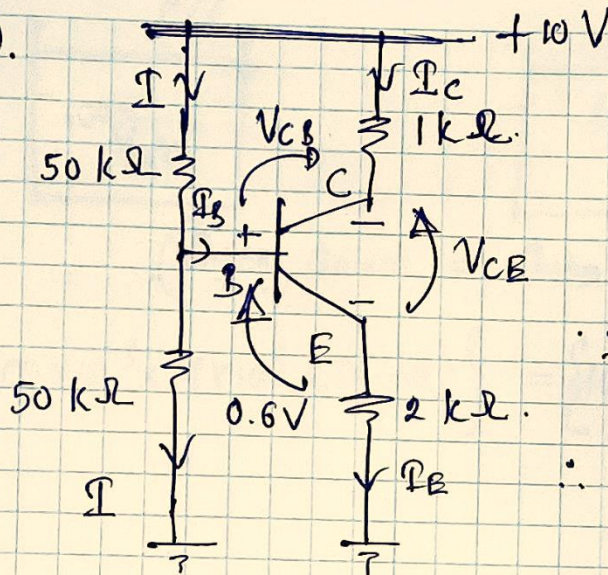 ).
+10 V
I
I_C
V_CB
1 kΩ.
50 kΩ
C
I_B
+
−
V_CE
B
−
E
∴
50 kΩ
0.6V
2 kΩ.
I
I_E
∴